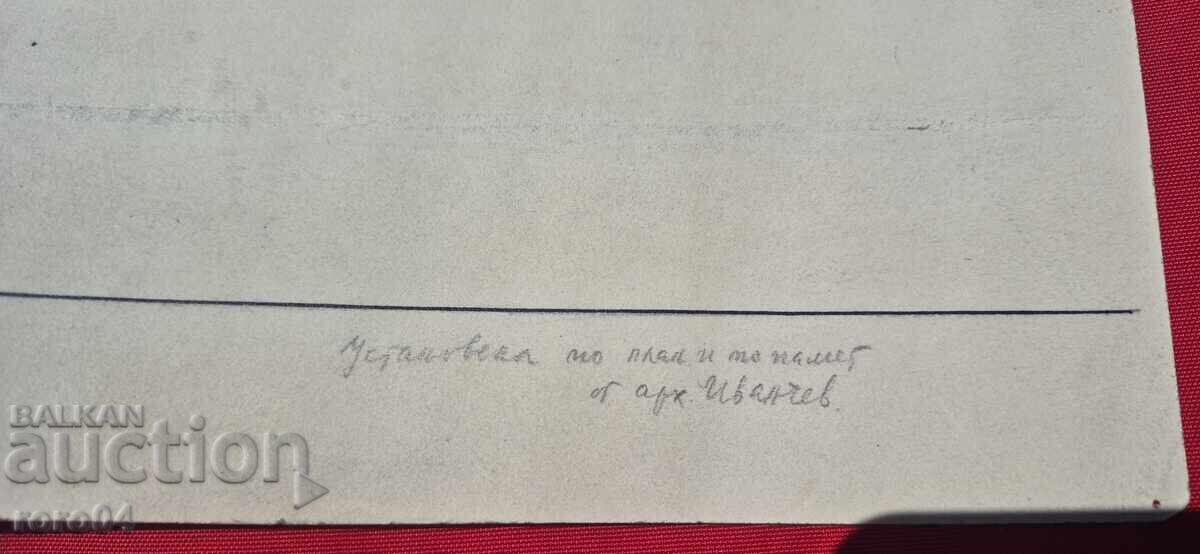 Установена по план и по памет
от арх. Иванчев.
BALKAN
auction
roro04